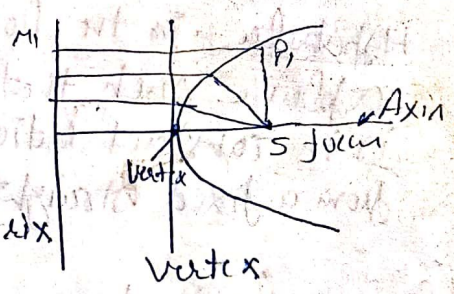 M1
P1
Axis
S focus
vertex
rix
vertex